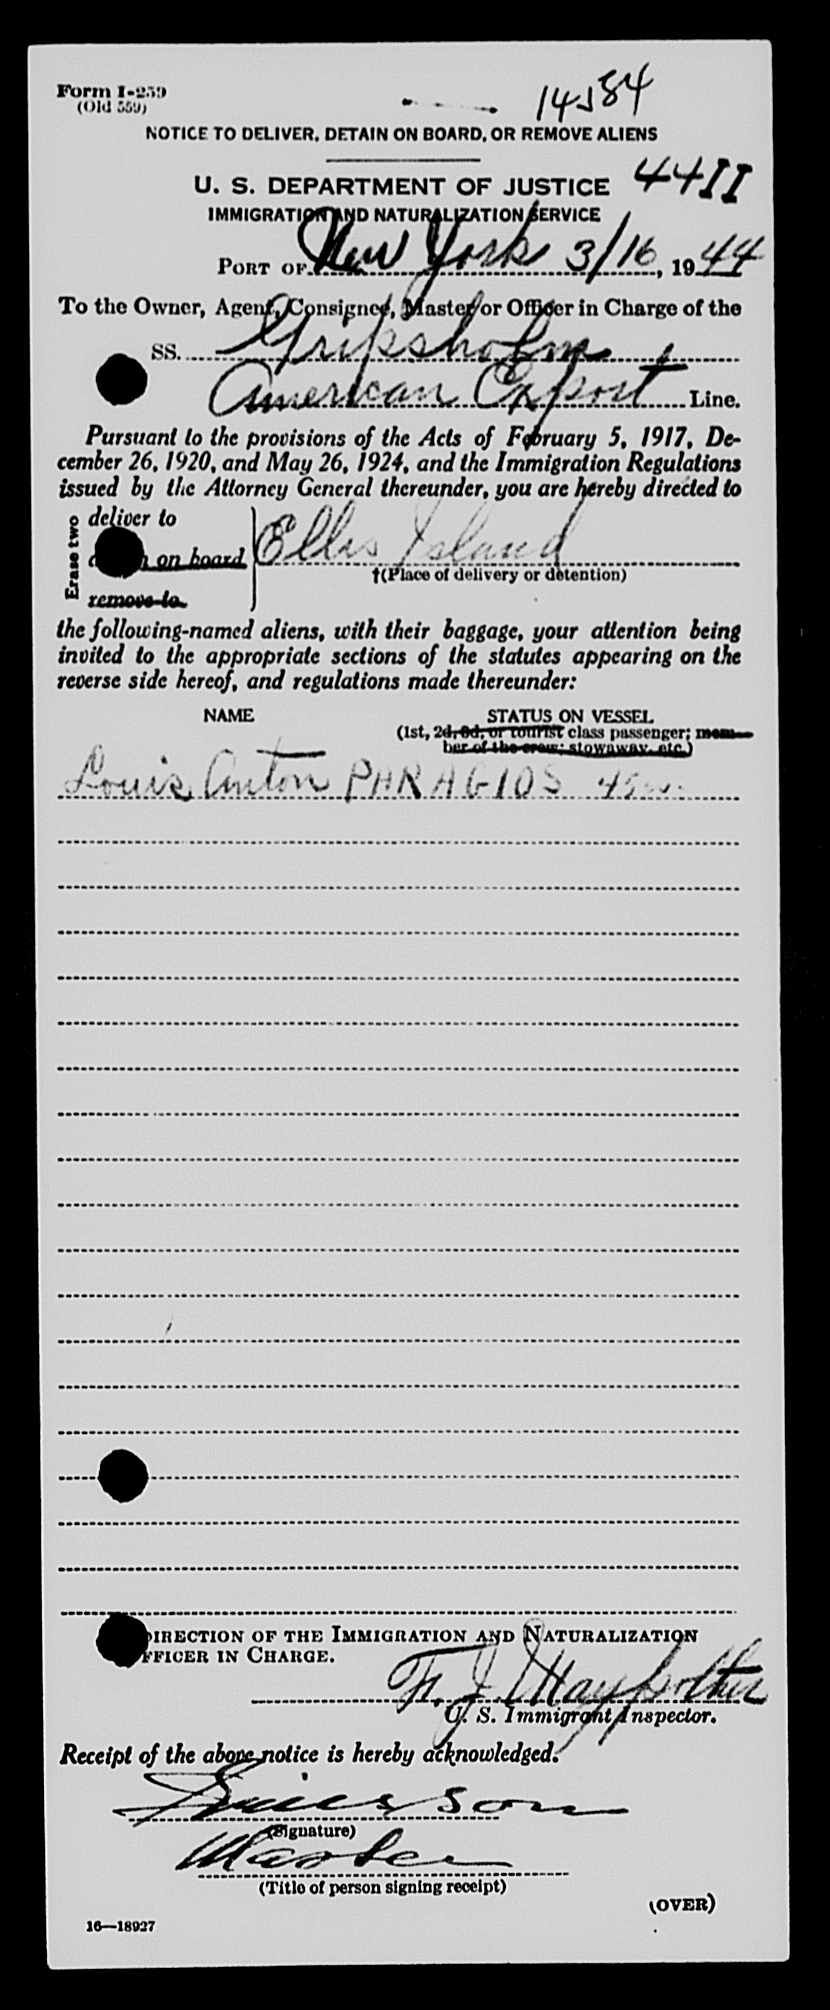 Form I-259
(Old 559)
NOTICE TO DELIVER, DETAIN ON BOARD, OR REMOVE ALIENS
44II
U. S. DEPARTMENT OF JUSTICE
IMMIGRATION AND NATURALIZATION SERVICE
PORT OF New York 3/16, 1944
To the Owner, Agent, Consignee, Master or Officer in Charge of the
SS. Gripsholm
American Export Line.
Pursuant to the provisions of the Acts of February 5, 1917, De-
cember 26, 1920, and May 26, 1924, and the Immigration Regulations
issued by the Attorney General thereunder, you are hereby directed to
Erase two
deliver to
on board
remove to
Ellis Island
†(Place of delivery or detention)
the following-named aliens, with their baggage, your attention being
invited to the appropriate sections of the statutes appearing on the
reverse side hereof, and regulations made thereunder:
NAME STATUS ON VESSEL
(1st, 2d, 3d, or tourist class passenger; mem-
ber of the crew; stowaway, etc.)
Louis Anton PARAGIOS
DIRECTION OF THE IMMIGRATION AND NATURALIZATION
OFFICER IN CHARGE.
U. S. Immigrant Inspector.
Receipt of the above notice is hereby acknowledged.
Ericsson
(Signature)
Master
(Title of person signing receipt)
(OVER)
16—18927